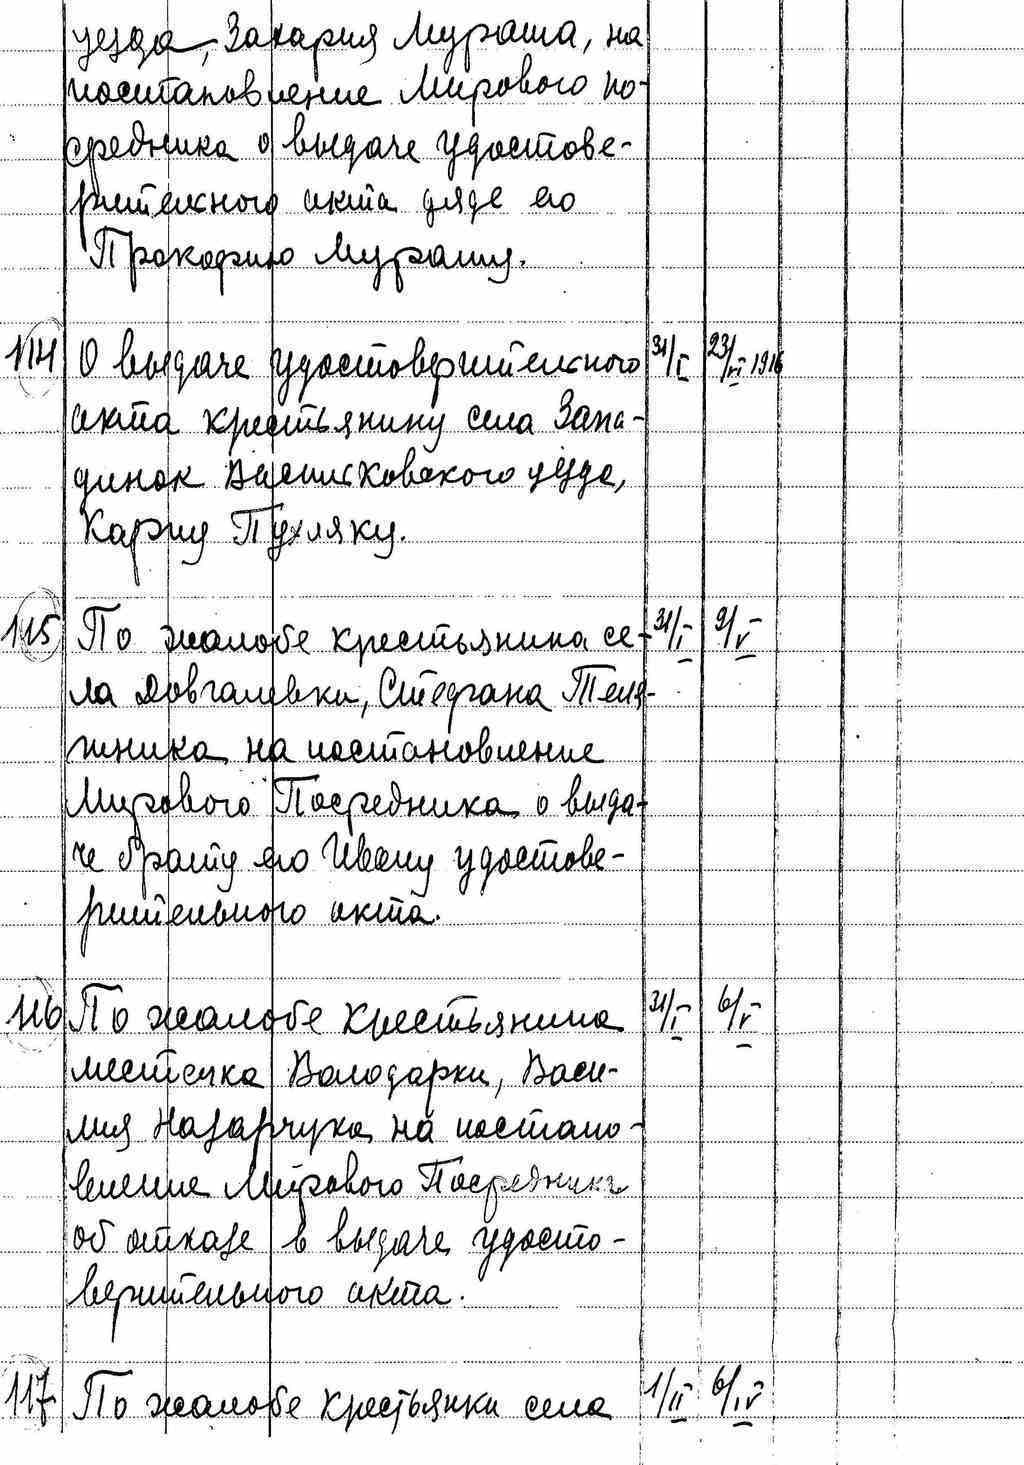 уезда, Захария Мураша, на
постановление Мирового по-
средника о выдаче удостове-
рительного акта дяде его
Прокофию Мурашу.
114 О выдаче удостоверительного 31/I 23/VI 1916
акта крестьянину села Запа-
динок Васильковского уезда,
Карпу Пухляку.
115 По жалобе крестьянина се- 31/I 9/V
ла Довгалевки, Стефана Теля-
жника на постановление
Мирового Посредника о выда-
че брату его Ивану удостове-
рительного акта.
116 По жалобе крестьянина 31/I 6/V
местечка Володарки, Васи-
лия Назарчука на постано-
вление Мирового Посредника
об отказе в выдаче удосто-
верительного акта.
117 По жалобе крестьянки села 1/II 6/IV